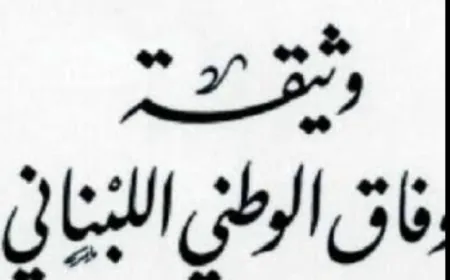 وثيقة
وفاق الوطني اللبناني